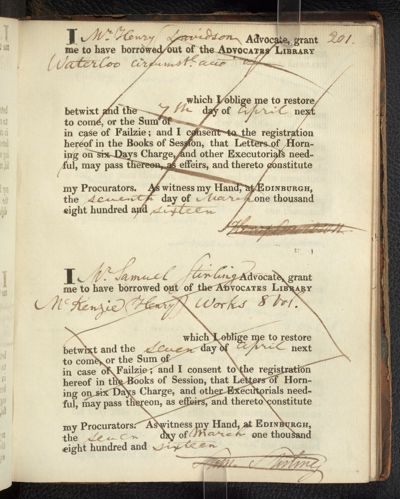 201.
I Mr. Henry Davidson Advocate, grant
me to have borrowed out of the ADVOCATES LIBRARY
Waterloo circumst. acco
which I oblige me to restore
betwixt and the 7th day of April next
to come, or the Sum of
in case of Failzie; and I consent to the registration
hereof in the Books of Session, that Letters of Horn-
ing on six Days Charge, and other Executorials need-
ful, may pass thereon, as effeirs, and thereto constitute
my Procurators. As witness my Hand, at EDINBURGH,
the seventh day of March one thousand
eight hundred and sixteen
I Mr. Samuel Stirling Advocate, grant
me to have borrowed out of the ADVOCATES LIBRARY
McKenzie (Henry) Works 8 vol.
which I oblige me to restore
betwixt and the seven day of April next
to come, or the Sum of
in case of Failzie; and I consent to the registration
hereof in the Books of Session, that Letters of Horn-
ing on six Days Charge, and other Executorials need-
ful, may pass thereon, as effeirs, and thereto constitute
my Procurators. As witness my Hand, at EDINBURGH,
the seven day of March one thousand
eight hundred and sixteen
Stirling